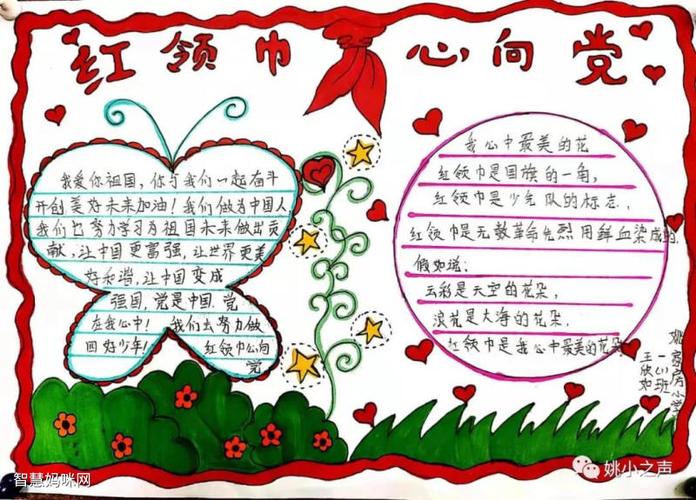 红领巾 心向党
我爱你祖国，你与我们一起奋斗
开创美好未来加油！我们做为中国人
我们也努力学习为祖国未来做出贡
献，让中国更富强，让世界更美
好和谐，让中国变成
强国，党是中国.党
在我心中！我们去努力做
四好少年！ 红领巾心向
党
我心中最美的花
红领巾是国旗的一角，
红领巾是少先队的标志，
红领巾是无数革命先烈用鲜血染成的，
假如说：
云彩是天空的花朵，
浪花是大海的花朵，
红领巾是我心中最美的花朵
姚家房小学
一(1)班
王欣如
智慧妈咪网
姚小之声